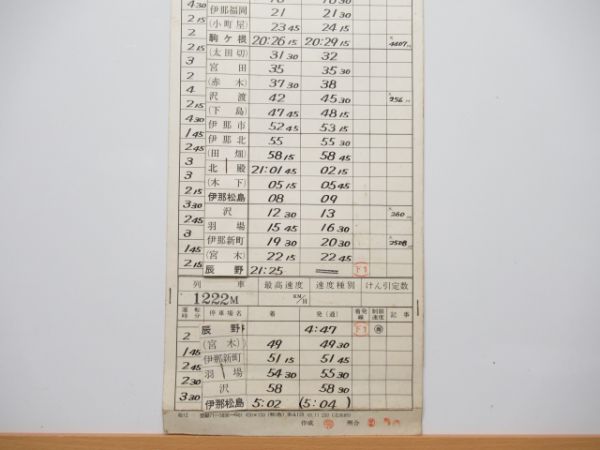 4 30
伊那福岡 21 21 30
2
(小町屋) 23 45 24 15
2
駒ケ根 20:26 15 20:29 15 4407
2 15
(太田切) 31 30 32
3
宮田 35 35 30
2
(赤木) 37 30 38
4
沢渡 42 45 30 256
2 15
(下島) 47 45 48 15
4 30
伊那市 52 45 53 15
1 45
伊那北 55 55 30
2 45
(田畑) 58 15 58 45
3
北殿 21:01 45 02 15
3
(木下) 05 15 05 45
2 15
伊那松島 08 09
3 30
沢 12 30 13 260
2 45
羽場 15 45 16 30
3
伊那新町 19 30 20 30 2508
1 45
(宮木) 22 15 22 45
2 15
辰野 21:25 下1
列車 最高速度 速度種別 けん引定数
1222M KM/H
運転時分 停車場名 着 発(通) 着発線 制限速度 記事
辰野 4:47 下1
2
(宮木) 49 49 30
1 45
伊那新町 51 15 51 45
2 45
羽場 54 30 55 30
2 30
沢 58 58 30
3 30
伊那松島 5:02 (5:04)
作成 照合